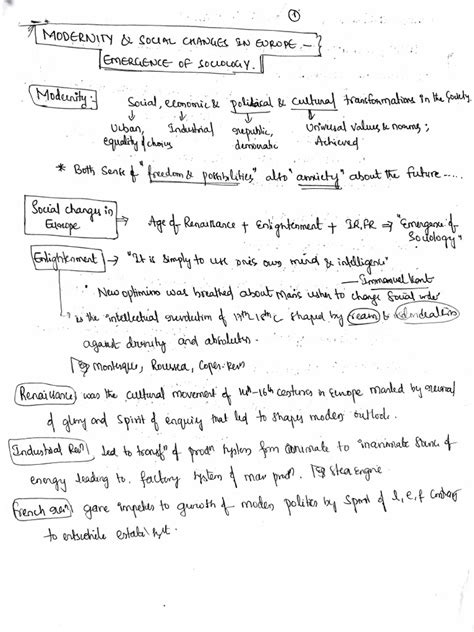 ①
MODERNITY & SOCIAL CHANGES IN EUROPE -
EMERGENCE OF SOCIOLOGY.
Modernity :- Social, economic & political & cultural transformations in the Society
Urban, Industrial republic, Universal values & norms;
equality of choices democratic Achieved
* Both Sense of "freedom & possibilities," also "anxiety" about the future ......
Social changes in Europe → Age of Renaissance + Enlightenment + IR, FR → "Emergence of Sociology"
Enlightenment → "It is simply to use one's own mind & intelligence"
— Immanuel Kant
• New optimism was breathed about Man's to change Social order
is the intellectual revolution of 17th 18th C shaped by reason &
against divinity and absolutism.
Eg Montesque, Roussea,
Renaissance was the cultural movement of 14th-16th centuries in Europe marked by
of glory and Spirit of enquiry that led to shape modern outlook.
Industrial Revn led to transfn of prodn System from animate to inanimate Source of
energy leading to factory System of mass prodn. Eg Steam Engine
French Revn gave impetus to growth of modern politics by Spirit of l, e, f
to